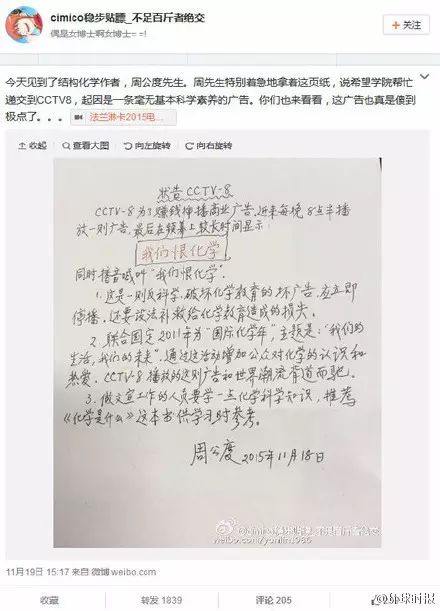 cimico稳步贴膘_不足百斤者绝交
偶是女博士啊女博士= =!
+ 关注
今天见到了结构化学作者，周公度先生。周先生特别着急地拿着这页纸，说希望学院帮忙
递交到CCTV8，起因是一条毫无基本科学素养的广告。你们也来看看，这广告也真是傻到
极点了。。。 法兰淋卡2015电...
收起 查看大图 向左旋转 向右旋转
状告CCTV-8
CCTV-8为了赚钱伸播商业广告.近来每晚8点半播
放一则广告.最后在频幕上较长时间显示:
我们恨化学
同时播音喊叫"我们恨化学".
1.这是一则反科学.破坏化学教育的坏广告.应立即
停播.还要设法补救给化学教育造成的损失.
2.联合国定2011年为"国际化学年",主题是:"我们的
生活,我们的未来".通过这活动增加公众对化学的认识和
热爱.CCTV-8播放的这则广告和世界潮流背道而驰.
3.做文宣工作的人员要学一点化学科学知识,推荐
《化学是什么》这本书供学习时参考.
周公度 2015年11月18日
weibo.com/yumlin1986
11月19日 15:17 来自 微博 weibo.com
收藏 转发 1839 评论 205
@环球时报